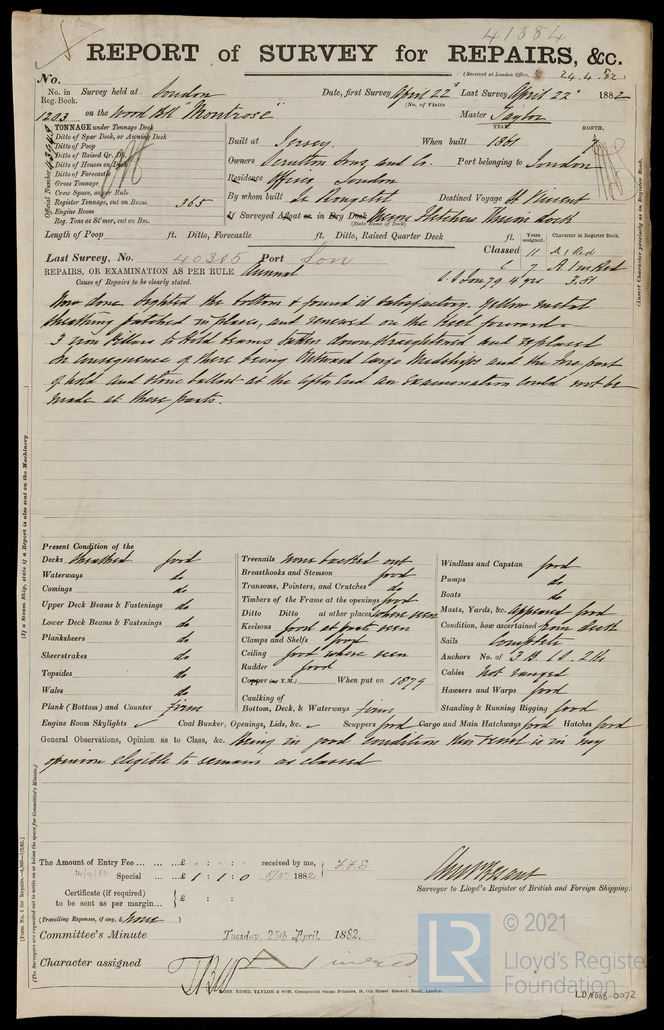 41384
REPORT of SURVEY for REPAIRS, &c.
(Received at London Office, 24.4.82)
No.
No. in Survey held at London Date, first Survey April 22d Last Survey April 22d 1882
Reg. Book. (No. of Visits
1203 on the Wood Bk "Montrose" Master Taylor
TONNAGE under Tonnage Deck
Ditto of Spar Deck, or Awning Deck
Ditto of Poop
Ditto of Raised Qr. Dk.
Ditto of Houses on Deck
Ditto of Forecastle
Gross Tonnage
Crew Space, as per Rule
Register Tonnage, cut on Beam 365
Engine Room
Reg. Tons as St'mer, cut on Bm.
Official Number
YEAR. MONTH.
Built at Jersey When built 1861 7
Owners Scrutton Sons and Co. Port belonging to London
Residence Office London
By whom built Destined Voyage St Vincent
If Surveyed Afloat or in Dry Dock Thames Dock
(State Name of Dock)
Length of Poop ft. Ditto, Forecastle ft. Ditto, Raised Quarter Deck ft.
Years assigned. Character in Register Book.
(Insert Character precisely as in Register Book.
Last Survey, No. 40315 Port Lon Classed 11 A 1 Red
C 7 A 1 in Red
REPAIRS, OR EXAMINATION AS PER RULE Annual S.S Lon 79 4 yrs 3.81
Cause of Repairs to be clearly stated.
Now done Sighted the bottom & found it satisfactory. Yellow metal
sheathing patched in place, and renewed on the keel forward.
3 iron Riders to hold beams taken down straightened and replaced
In consequence of there being Outward Cargo Midships and the fore part
of hold and stone ballast at the after end an examination could not be
made at those parts.
(If a Steam Ship, state if a Report is also sent on the Machinery
Present Condition of the
Decks Sheathed good
Waterways do
Comings do
Upper Deck Beams & Fastenings do
Lower Deck Beams & Fastenings do
Planksheers do
Sheerstrakes do
Topsides do
Wales do
Plank (Bottom) and Counter Firm
Treenails none backed out
Breasthooks and Stemson good
Transoms, Pointers, and Crutches do
Timbers of the Frame at the openings good
Ditto Ditto at other places where seen
Keelsons good at parts seen
Clamps and Shelfs good
Ceiling good where seen
Rudder good
Copper (or Y.M.) When put on 1879
Caulking of
Bottom, Deck, & Waterways Firm
Windlass and Capstan good
Pumps do
Boats do
Masts, Yards, &c. Appeared good
Condition, how ascertained From deck
Sails Complete
Anchors No. of 3 B. 1 S. 2 K
Cables Not ranged
Hawsers and Warps good
Standing & Running Rigging good
Engine Room Skylights ✓ Coal Bunker, Openings, Lids, &c. ✓ Scuppers good Cargo and Main Hatchways good Hatches good
General Observations, Opinion as to Class, &c. Being in good condition this vessel is in my
opinion eligible to remain as classed
(The Surveyors are requested not to write on or below the space for Committee's Minute.)
The Amount of Entry Fee ... ... ... £ : : received by me,
24/4/82 Special ... £ 1 : 1 : 0 1882
Certificate (if required)
to be sent as per margin... £ : :
(Travelling Expenses, if any, £ None )
Surveyor to Lloyd's Register of British and Foreign Shipping.
Committee's Minute Tuesday 25th April, 1882.
Character assigned A 1 in red
© 2021
LR
Lloyd's Register
Foundation
LDN068-0072